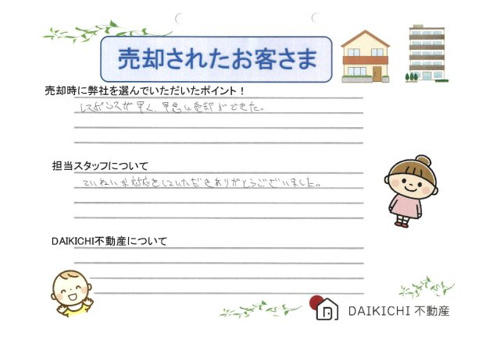 売却されたお客さま
売却時に弊社を選んでいただいたポイント！
レスポンスが早く、早急に売却ができた。
担当スタッフについて
ていねいな対応をしていただきありがとうございました。
DAIKICHI不動産について
DAIKICHI 不動産